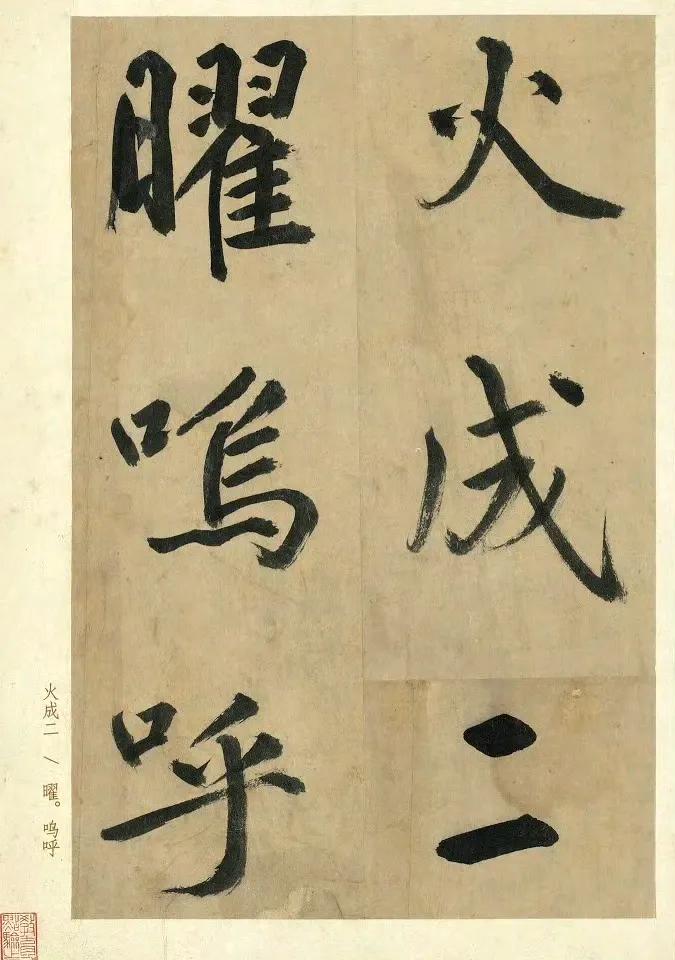 火成二
曜嗚呼
火成二 \ 曜。嗚呼